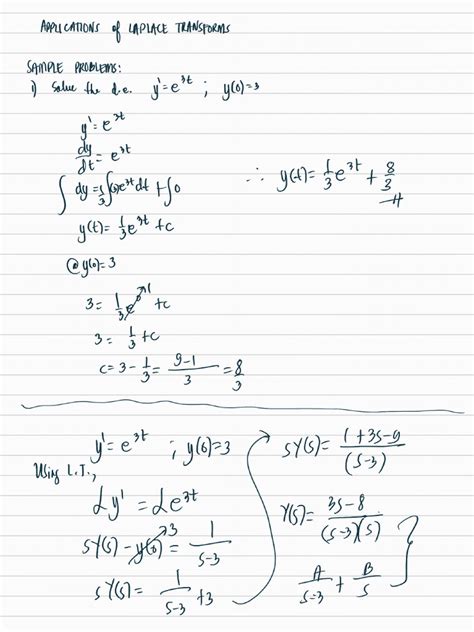 APPLICATIONS of LAPLACE TRANSFORMS
SAMPLE PROBLEMS:
1) Solve the d.e. y' = e^3t ; y(0)=3
y' = e^3t
dy/dt = e^3t
∫ dy = 1/3 ∫(3)e^3t dt + ∫0
y(t) = 1/3 e^3t + c
@ y(0) = 3
3 = 1/3 e^0 1 + c
3 = 1/3 + c
c = 3 - 1/3 = 9-1/3 = 8/3
∴ y(t) = 1/3 e^3t + 8/3
y' = e^3t ; y(0) = 3
Using L.T.,
Ly' = Le^3t
sY(s) - y(0) 3 = 1/s-3
sY(s) = 1/s-3 + 3
sY(s) = 1+3s-9/(s-3)
Y(s) = 3s-8/(s-3)(s)
A/s-3 + B/s